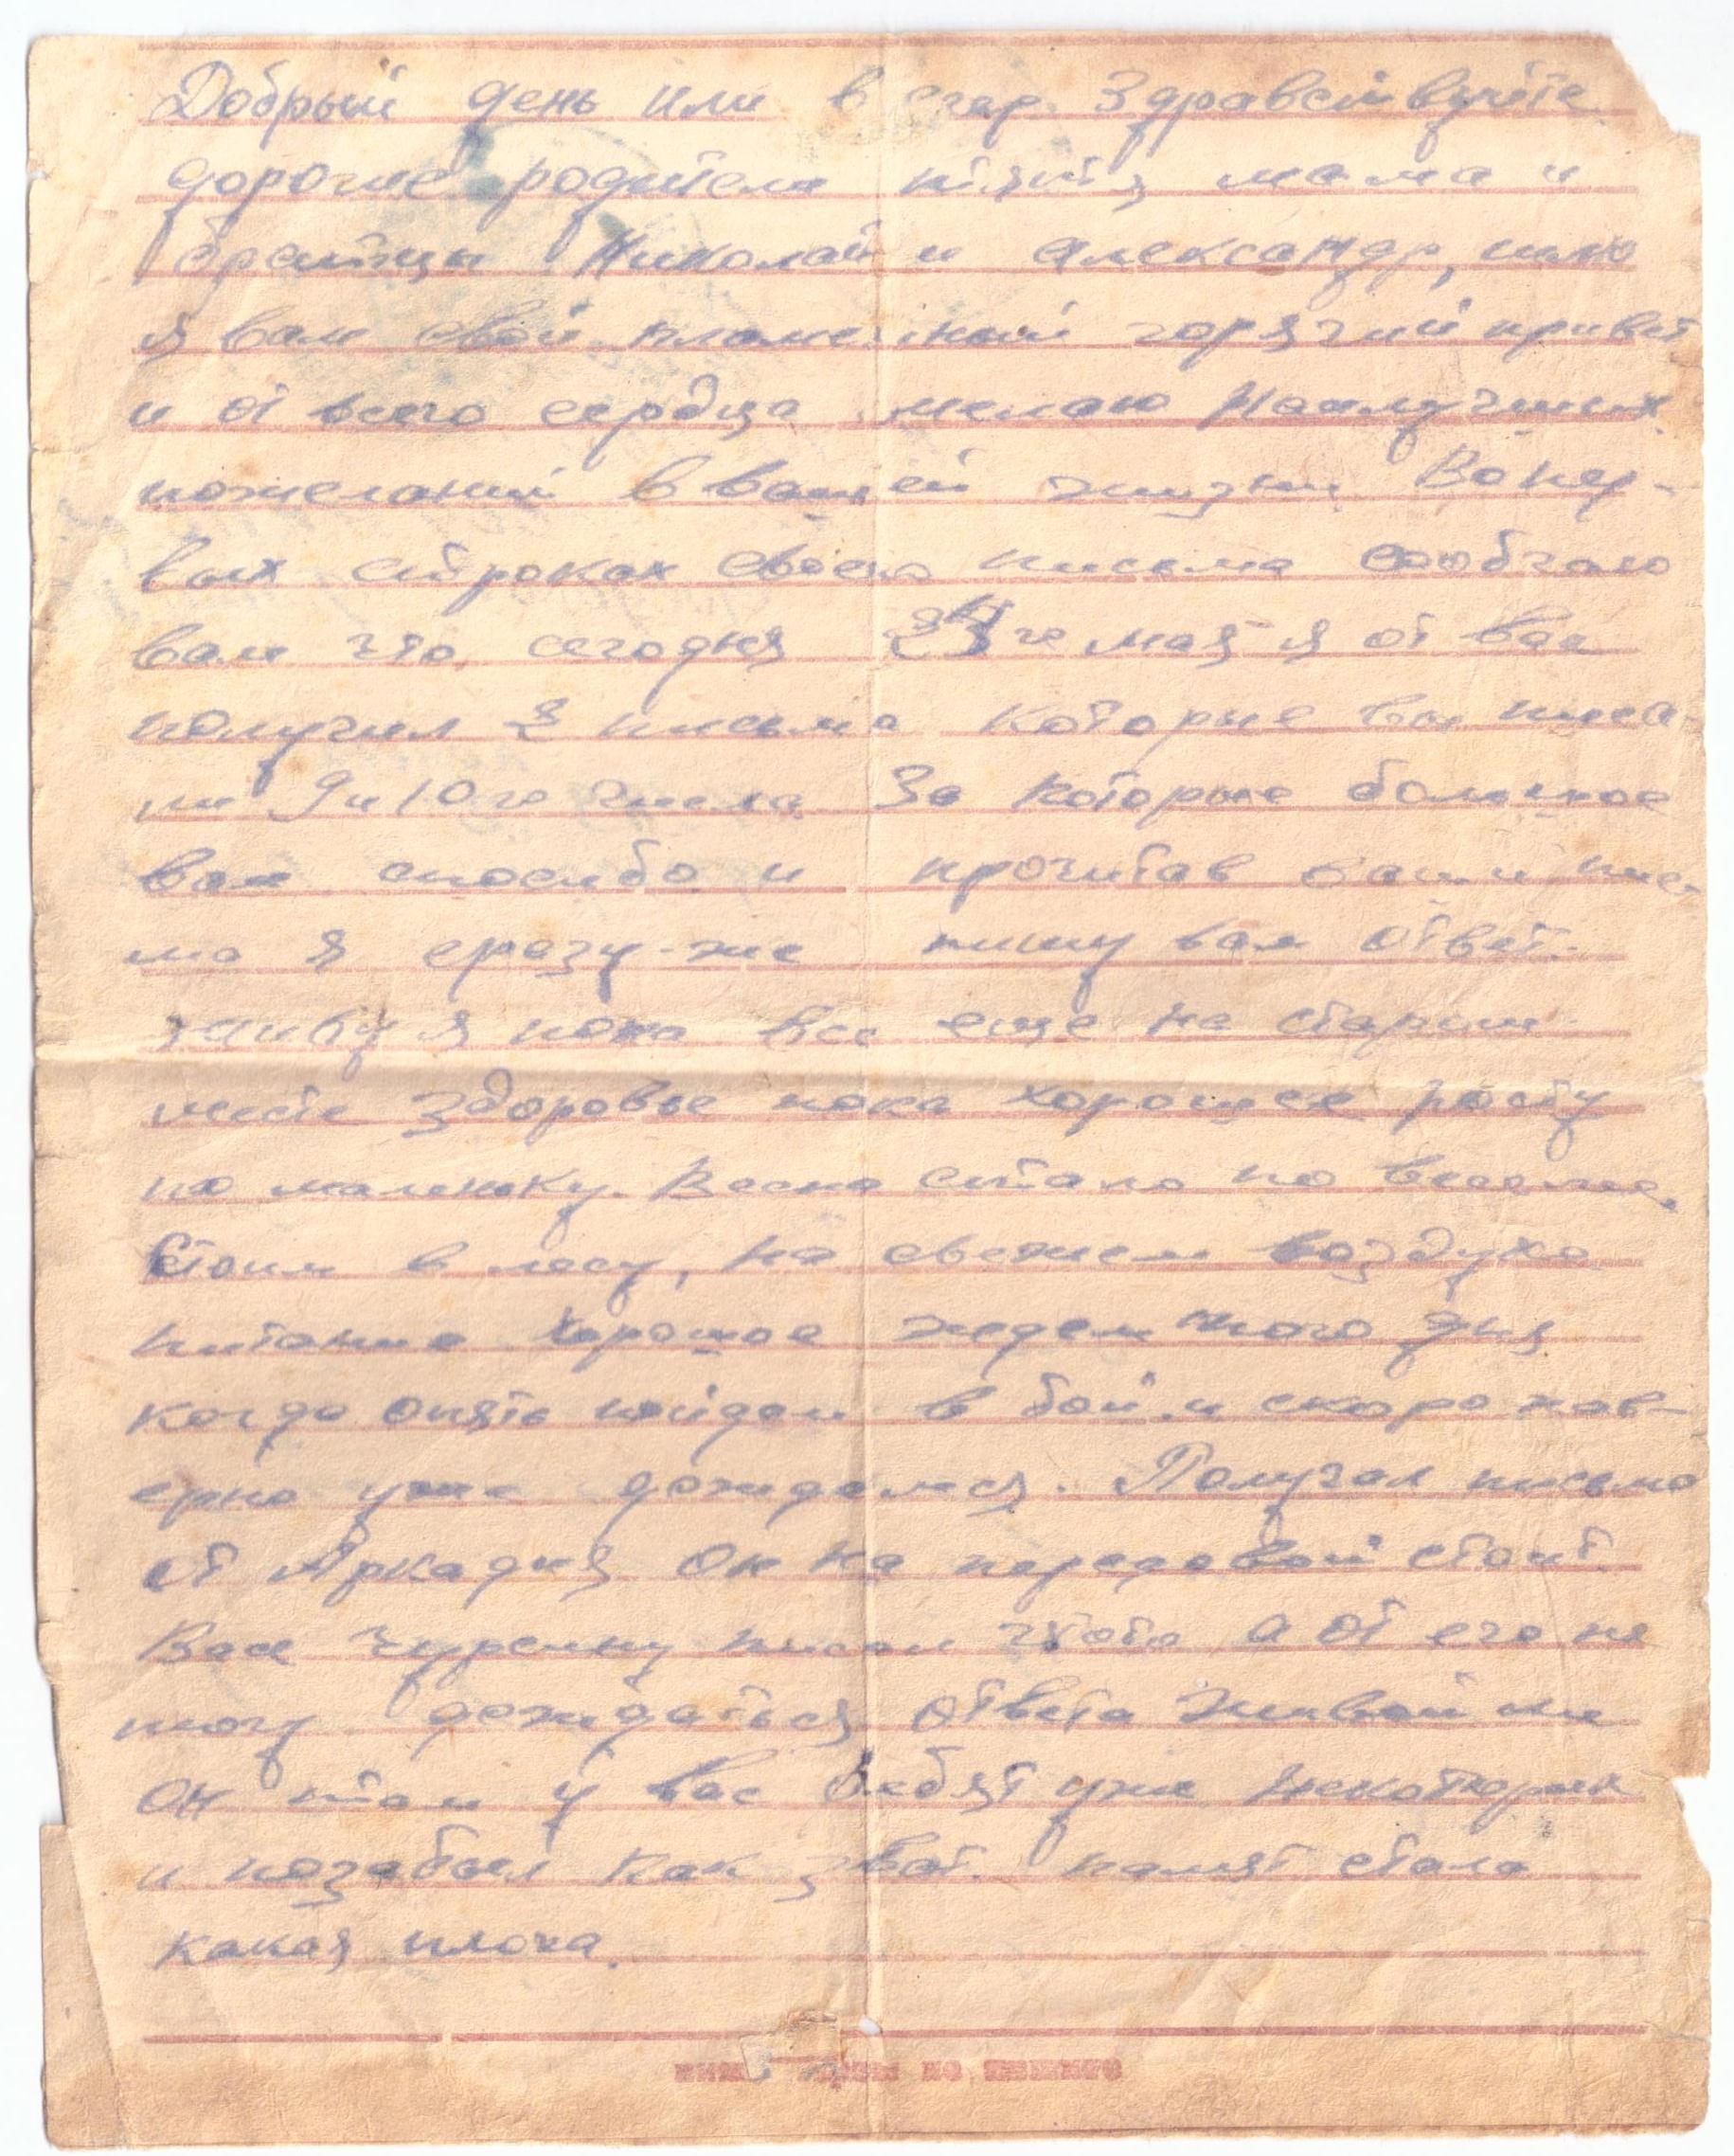 Добрый день или вечер. Здравствуйте
дорогие родители тятя, мама и
братцы Николай и Александр, шлю
я вам свой пламенный горячий привет
и от всего сердца желаю Наилучших
пожеланий в вашей жизни. Во пер-
вых строках своего письма сообчаю
вам что сегодня 24 го мая я от вас
получил 2 письма которые вы писа-
ли 9 и 10 го числа. За которые большое
вам спасибо и прочитав ваши пис-
ма я сразу-же пишу вам ответ.
живу я пока все еще на старом
месте здоровье пока хорошее росту
по маленьку. Весна стала по веселее.
Стоим в лесу, на свежем воздухе
питание хорошое ждем того дня
когда опять пойдем в бой и скоро нав-
ерно уже дождемся. Получал письмо
от Аркадия Он на передовой стоит.
Васе писал а от его не
могу дождаться ответа Живой ли
Он там у вас ребят уже некоторых
и позабыл как звать. памят стала
какая плоха.